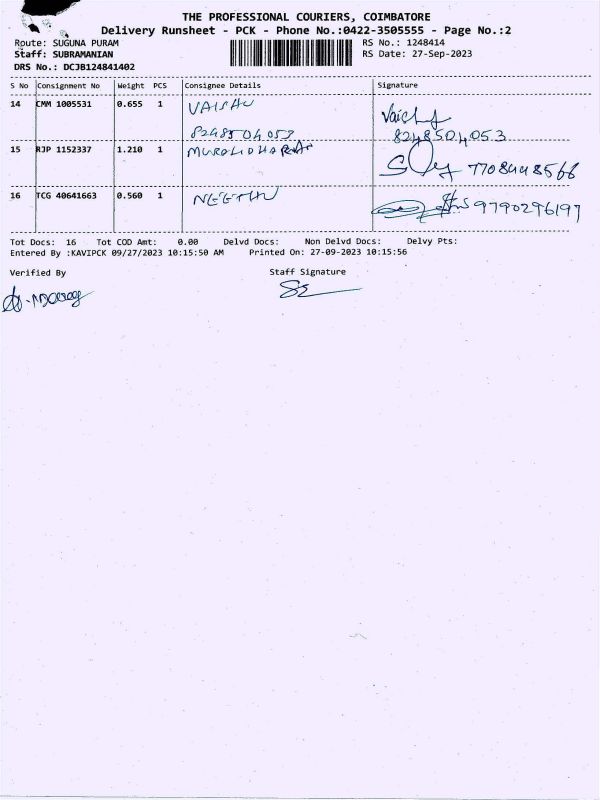 THE PROFESSIONAL COURIERS, COIMBATORE
Delivery Runsheet - PCK - Phone No.:0422-3505555 - Page No.:2
Route: SUGUNA PURAM
RS No.: 1248414
Staff: SUBRAMANIAN
RS Date: 27-Sep-2023
DRS No.: DCJB124841402
S No Consignment No Weight PCS Consignee Details Signature
14 CMM 1005531 0.655 1 VAISHU
8248504053
8248504053
15 RJP 1152337 1.210 1 MURALIDHARAN
7708448566
16 TCG 40641663 0.560 1 NEETHU
9790296197
Tot Docs: 16 Tot COD Amt: 0.00 Delvd Docs: Non Delvd Docs: Delvy Pts:
Entered By :KAVIPCK 09/27/2023 10:15:50 AM Printed On: 27-09-2023 10:15:56
Verified By Staff Signature